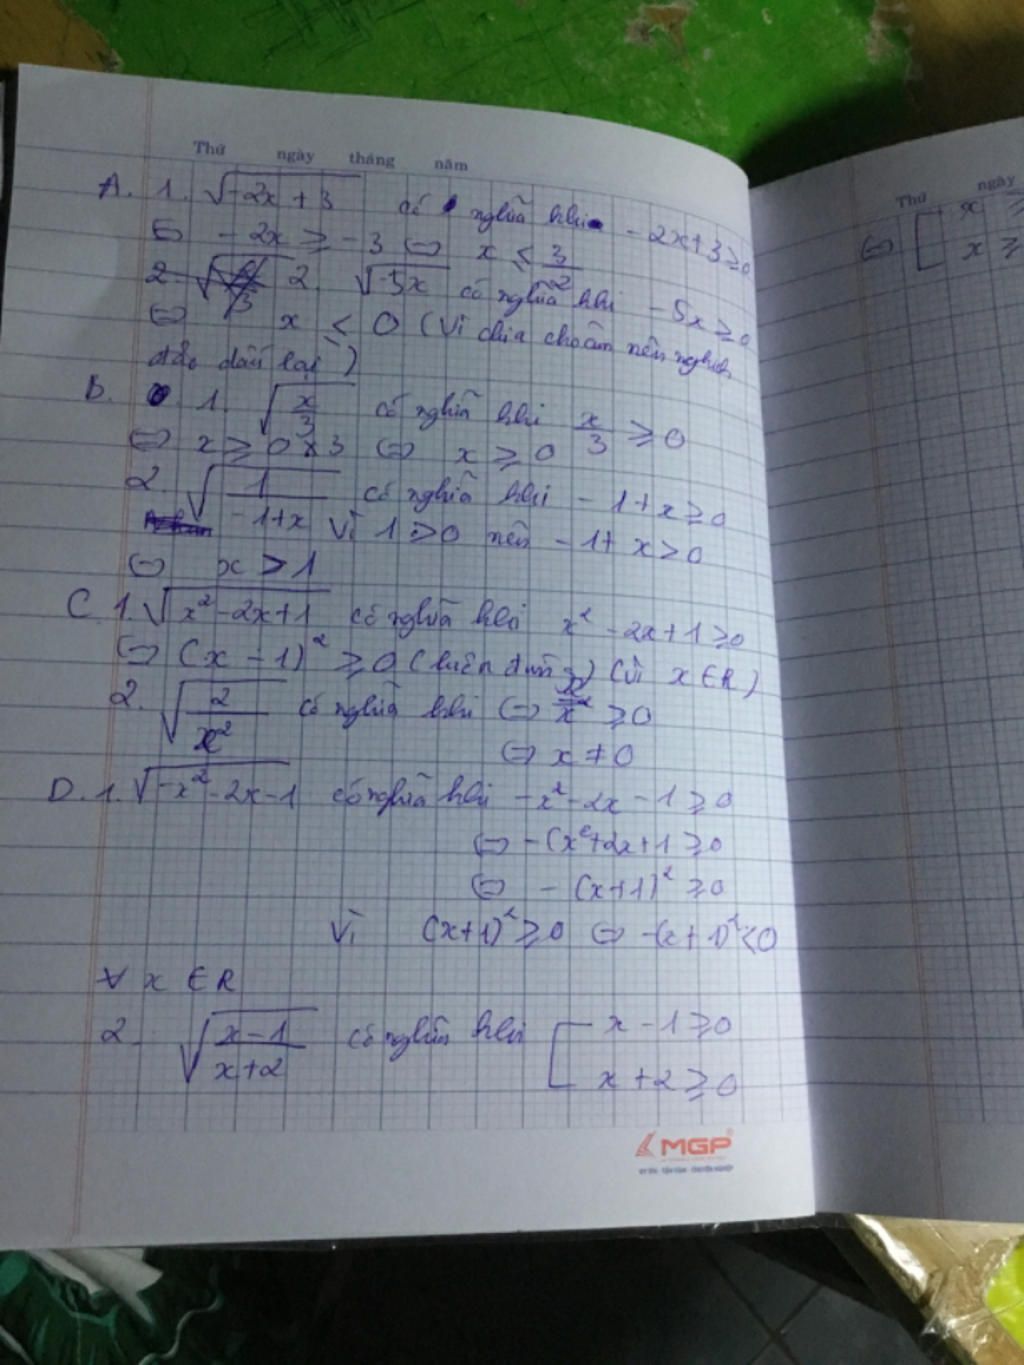 Thứ ngày tháng năm
A. 1. √-2x+3 có nghĩa khi -2x+3≥0
⇔ -2x ≥ -3 ⇔ x ≤ 3/2
2. 2. √-5x có nghĩa khi -5x≥0
⇔ x ≤ 0 (vì chia cho âm nên
đảo dấu lại)
B. 1. √x/3 có nghĩa khi x/3 ≥ 0
⇔ x ≥ 0×3 ⇔ x ≥ 0
2. √1/-1+x có nghĩa khi -1+x≥0
Vì 1≥0 nên -1+x>0
⇔ x > 1
C 1. √x²-2x+1 có nghĩa khi x²-2x+1≥0
⇔ (x-1)² ≥ 0 (luôn đúng) (vì x∈R)
2. √2/x² có nghĩa khi ⇔ 2/x² ≥0
⇔ x ≠ 0
D. 1. √-x²-2x-1 có nghĩa khi -x²-2x-1≥0
⇔ -(x²+2x+1≥0
⇔ -(x+1)² ≥0
Vì (x+1)²≥0 ⇔ -(x+1)²<0
∀ x ∈R
2. √x-1/x+2 có nghĩa khi [ x-1≥0
x+2≥0
MGP
Thứ ngày
⇔ [ x ≥
x ≥